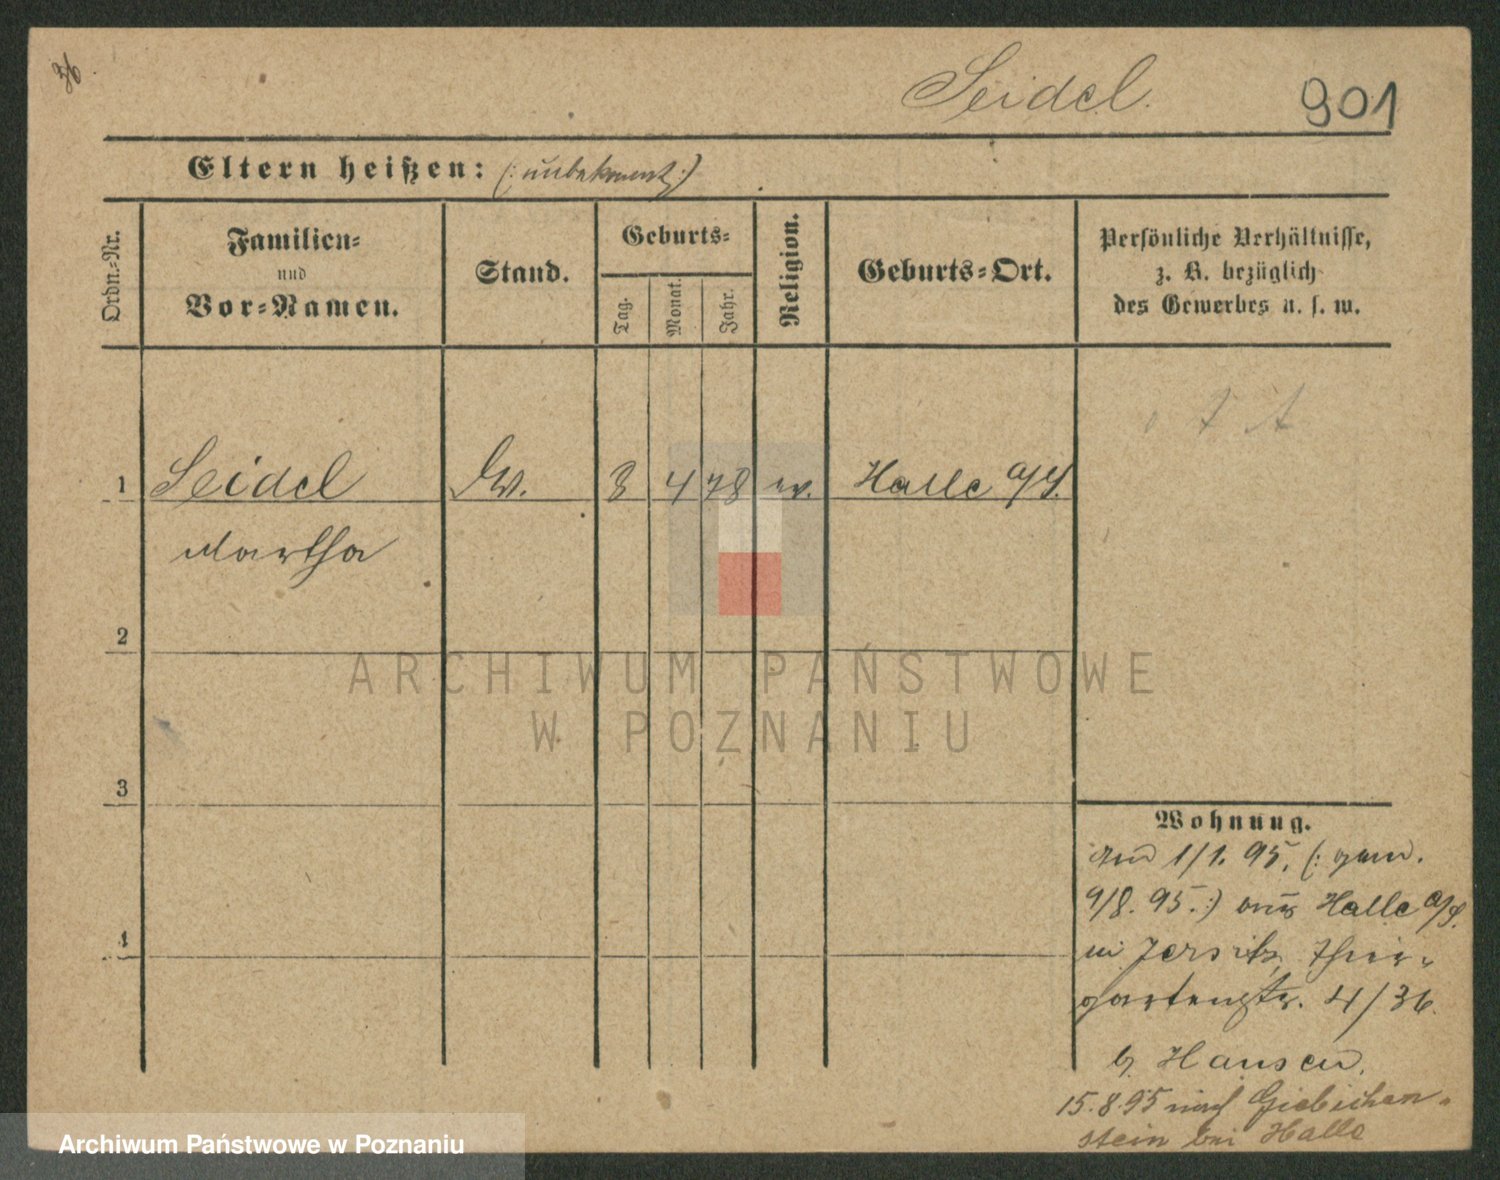 36
Seidel.
901
Eltern heißen: (: unbekannt :)
Ordn.-Nr.
Familien-
und
Vor-Namen.
Stand.
Geburts-
Tag.
Monat.
Jahr.
Religion.
Geburts-Ort.
Persönliche Verhältnisse,
z. B. bezüglich
des Gewerbes u. s. w.
1 Seidel 3 4 78 ev. Halle a/S.
Martha
2
3
4
ARCHIWUM PAŃSTWOWE
W POZNANIU
Wohnung.
am 1/1. 95. (: gem.
9/8. 95. :) aus Halle a/S.
in Jersitz, Thier-
gartenstr. 4/36.
b. Hansen.
15.8.95 nach Giebichen-
stein bei Halle
Archiwum Państwowe w Poznaniu